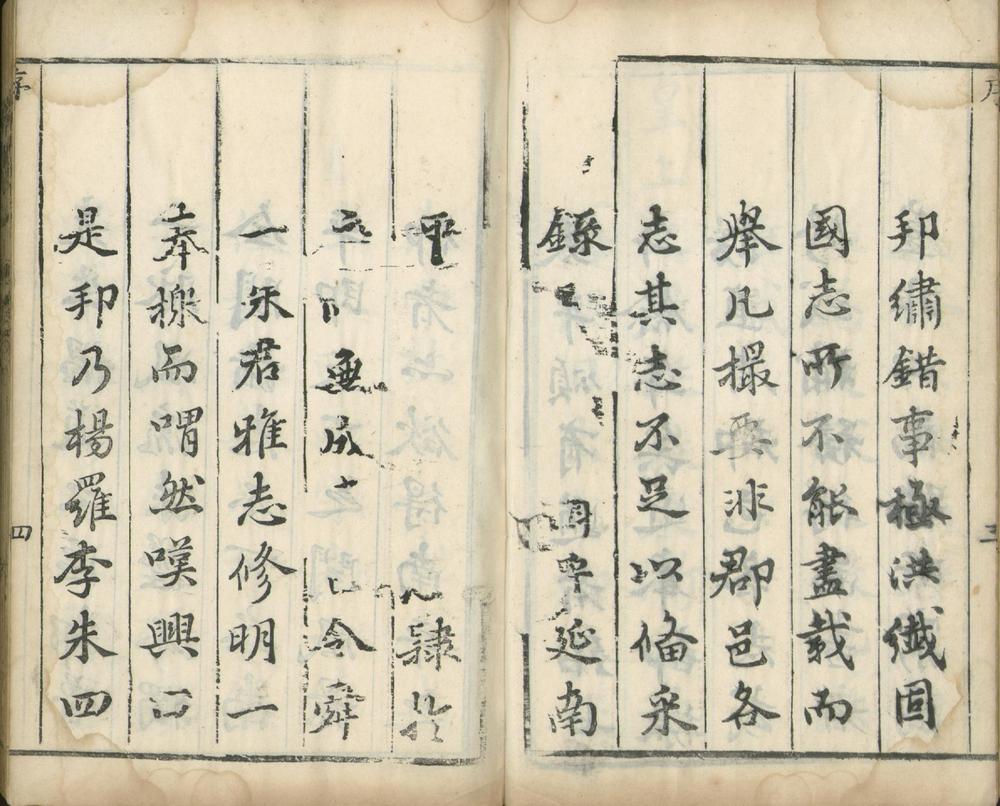 邦繡錯事極洪纖固
國志所不能盡載而
舉凡撮要非郡邑各
志其志不足以備采
錄 延南
平 志隸於
無成 令舜
一朱君雅志修明一
奉檄而喟然嘆興曰
是邦乃楊羅李朱四
序
四